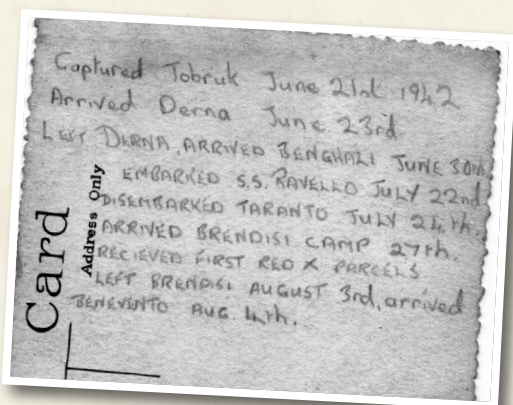 Captured Tobruk June 21st 1942
Arrived Derna June 23rd
LEFT DERNA, ARRIVED BENGHAZI JUNE 30th
EMBARKED S.S. RAVELLO JULY 22nd
DISEMBARKED TARANTO JULY 24th.
ARRIVED BRENDISI CAMP 27th.
RECIEVED FIRST RED X PARCELS
LEFT BRENDISI AUGUST 3rd, arrived
BENEVENTO AUG. 4th.
Card
Address Only